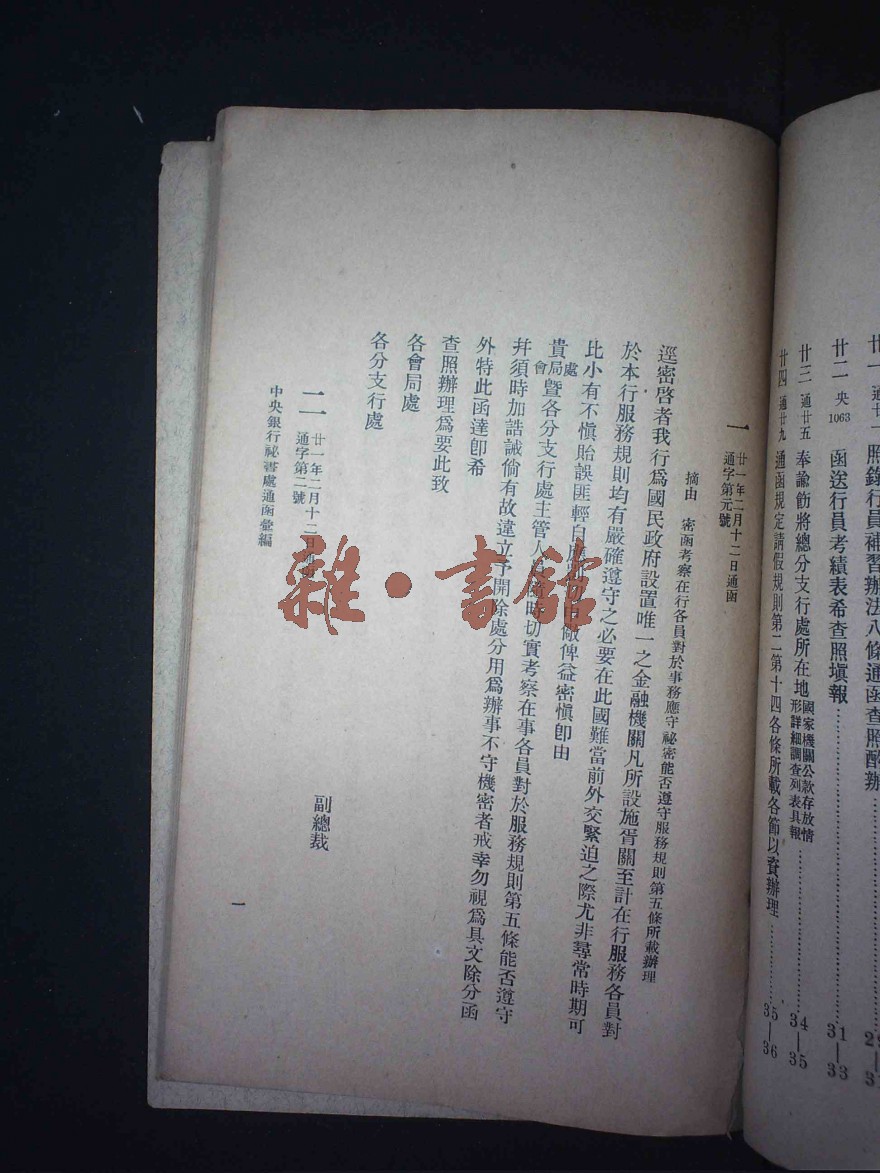 廿一 通廿一 照錄行員補習辦法八條通函查照酌辦
廿二 央1063 函送行員考績表希查照塡報 31—33
廿三 通廿五 奉諭飭將總分支行處所在地國家機關公款存放情形詳細調查列表具報 34—35
廿四 通廿九 通函規定請假規則第二第十四各條所載各節以資辦理 35—36
一 廿一年二月十二日通函
通字第元號
摘由 密函考察在行各員對於事務應守祕密能否遵守服務規則第五條所載辦理
逕密啓者我行爲國民政府設置唯一之金融機關凡所設施胥關至計在行服務各員對
於本行服務規則均有嚴確遵守之必要在此國難當前外交緊迫之際尤非尋常時期可
比小有不愼貽誤匪輕自應 俾益密愼卽由
貴處局會曁各分支行處主管人員隨時切實考察在事各員對於服務規則第五條能否遵守
幷須時加誥誡倘有故違立予開除處分用爲辦事不守機密者戒幸勿視爲具文除分函
外特此函達卽希
查照辦理爲要此致
各會局處
各分支行處
副總裁
二 廿一年二月十二日通函
通字第二號
中央銀行祕書處通函彙編
一
雜·書館